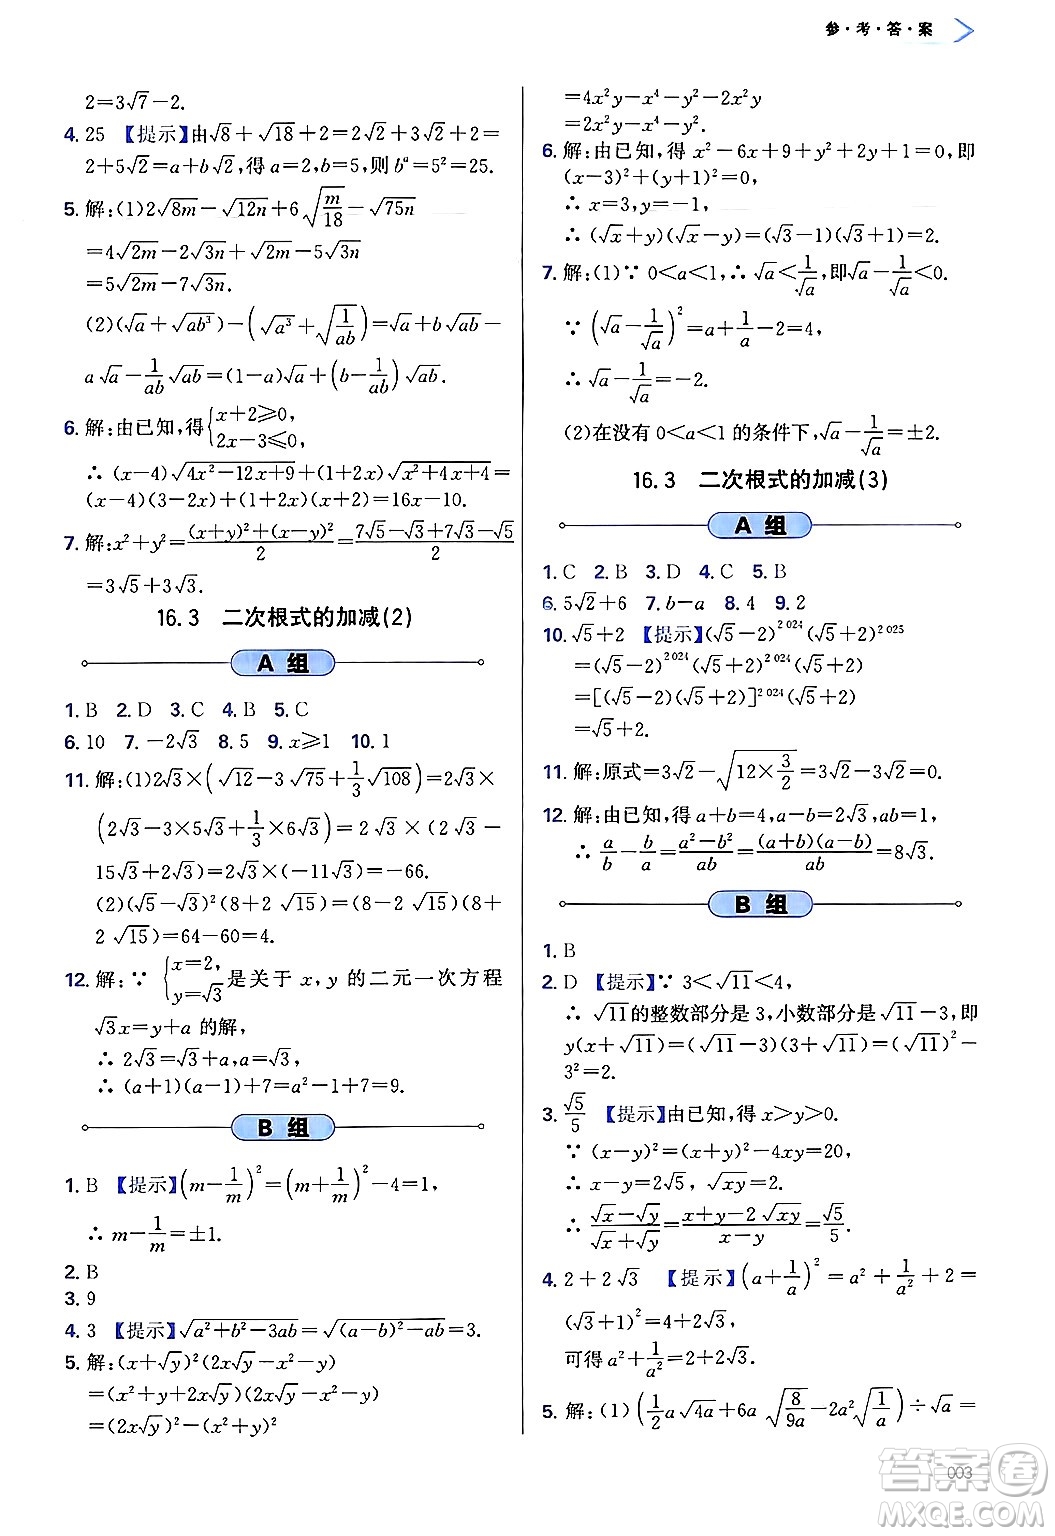 参·考·答·案
2=3√7-2.
4. 25 【提示】由√8+√18+2=2√2+3√2+2=
2+5√2=a+b√2,得a=2,b=5,则bᵃ=5²=25.
5. 解:(1)2√(8m)-√(12n)+6√(m/18)-√(75n)
=4√(2m)-2√(3n)+√(2m)-5√(3n)
=5√(2m)-7√(3n).
(2)(√a+√(ab³))-(√(a³)+√(1/(ab)))=√a+b√(ab)-
a√a-(1/(ab))√(ab)=(1-a)√a+(b-1/(ab))√(ab).
6. 解:由已知,得{x+2≥0, 2x-3≤0,
∴(x-4)√(4x²-12x+9)+(x-4)√(x²+4x+4)=
(x-4)(3-2x)+(x-4)(x+2)(2)=16x-10.
7. 解:x²+y²=((x+y)²+(x-y)²)/2=(7√5-√3+7√3-√5)/2
=3√5+3√3.
16.3 二次根式的加减(2)
A 组
1. B 2. D 3. C 4. B 5. C
6. 10 7. -2√3 8. 5 9. x≥1 10. 1
11. 解:(1)2√3×(√12-3√75+1/3√108)=2√3×
(2√3-3×5√3+1/3×6√3)=2√3×(2√3-
15√3+2√3)=2√3×(-11√3)=-66.
(2)(√5-√3)²(8+2√15)=(8-2√15)(8+
2√15)=64-60=4.
12. 解:∵{x=2, y=√3是关于x,y的二元一次方程
√3x=y+a的解,
∴2√3=√3+a,a=√3.
∴(a+1)(a-1)+7=a²+6=9.
B 组
1. B 【提示】(m-1/m)²=(m+1/m)²-4=1,
∴m-1/m=±1.
2. B
3. 9
4. 3 【提示】√(a²+b²-3ab)=√((a-b)²-ab)=3.
5. 解:(x+√y)²(2x√y-x²-y)
=(x²+y+2x√y)(2x√y-x²-y)
=(2x√y)²-(x²+y)²
=4x²y-x⁴-y²-2x²y
=2x²y-x⁴-y².
6. 解:由已知,得x²-6x+9+y²+2y+1=0,即
(x-3)²+(y+1)²=0,
∴x=3,y=-1,
∴(√x+y)(√x-y)=(√3-1)(√3+1)=2.
7. 解:(1)∵0<a<1,∴√a<1/√a,即√a-1/√a<0.
∵(√a-1/√a)²=a+1/a-2=4,
∴√a-1/√a=-2.
(2)在没有0<a<1的条件下,√a-1/√a=±2.
16.3 二次根式的加减(3)
A 组
1. C 2. B 3. D 4. C 5. B
6. 5√2+6 7. b-a 8. 4 9. 2
10. √5+2 【提示】(√5-2)²⁰²⁴(√5+2)²⁰²⁵
=(√5-2)²⁰²⁴(√5+2)²⁰²⁴(√5+2)
=[(√5-2)(√5+2)]²⁰²⁴(√5+2)
=√5+2.
11. 解:原式=3√2-√(12×3/2)=3√2-3√2=0.
12. 解:由已知,得a+b=4,a-b=2√3,ab=1,
∴a/b-b/a=(a²-b²)/(ab)=((a+b)(a-b))/(ab)=8√3.
B 组
1. B
2. D 【提示】∵3<√11<4,
∴√11的整数部分是3,小数部分是√11-3,即
y(x+√11)=(√11-3)(3+√11)=(√11)²-
3²=2.
3. √5/5 【提示】由已知,得x>y>0.
∵(x-y)²=(x+y)²-4xy=20,
∴x-y=2√5,√(xy)=2.
∴(√x-√y)/(√x+√y)=(x+y-2√(xy))/(x-y)=√5/5.
4. 2+2√3 【提示】(a+1/a)²=a²+1/a²+2=
(√3+1)²=4+2√3,
可得a²+1/a²=2+2√3.
5. 解:(1)(1/2a√(4a)+6a√(8/(9a))-2a²√(1/a))÷√a=
003
答案圈
MXQE.COM